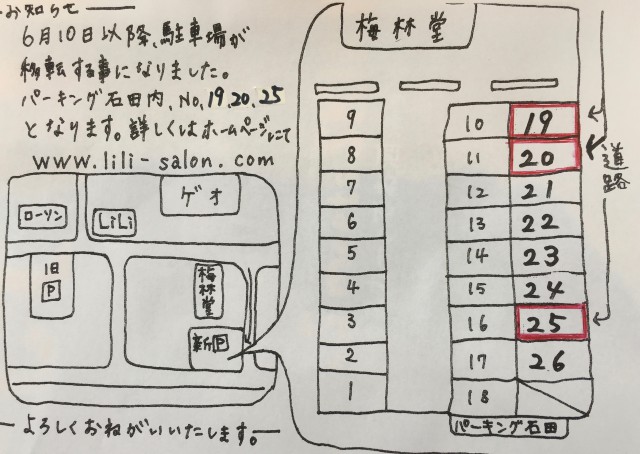 お知らせ
6月10日以降、駐車場が
移転する事になりました。
パーキング石田内、No,19,20,25
となります。詳しくはホームページにて
www.lili-salon.com
ゲオ
ローソン
LiLi
旧
P
梅林堂
新P
よろしくおねがいいたします。
梅林堂
9
8
7
6
5
4
3
2
1
10 19
11 20
12 21
13 22
14 23
15 24
16 25
17 26
18
パーキング石田
道路